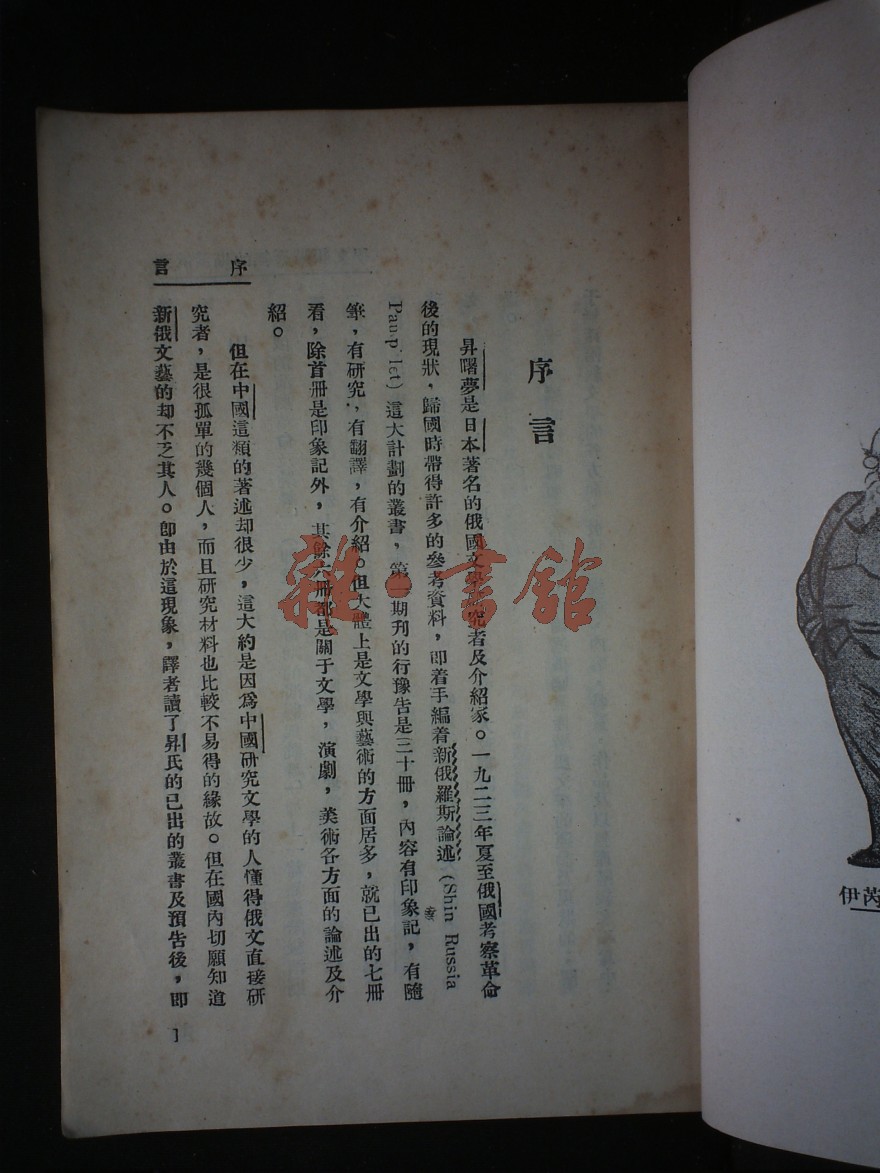 序言
序言
昇曙夢是日本著名的俄國文學研究者及介紹家。一九二三年夏至俄國考察革命
後的現狀，歸國時帶得許多的參考資料，即着手編着新俄羅斯論述（Shin Russia
Pamphlet）這大計劃的叢書，第一期刊的行豫告是三十冊，內容有印象記，有隨
筆，有研究，有翻譯，有介紹。但大體上是文學與藝術的方面居多，就已出的七冊
看，除首冊是印象記外，其餘六冊都是關于文學，演劇，美術各方面的論述及介
紹。
但在中國這類的著述却很少，這大約是因爲中國研究文學的人懂得俄文直接研
究者，是很孤單的幾個人，而且研究材料也比較不易得的緣故。但在國內切願知道
新俄文藝的却不乏其人。即由於這現象，譯者讀了昇氏的已出的叢書及預告後，即
1
雜·書館
伊芮